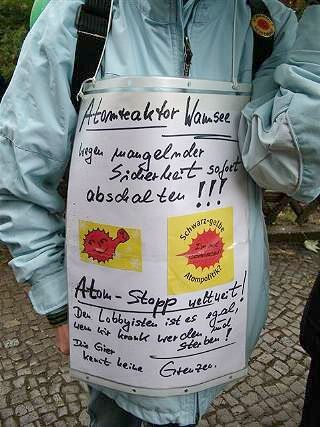 Atomreaktor Wannsee
wegen mangelnder
Sicherheit sofort
abschalten !!!
Schwarz-gelbe
Atompolitik?
Atom-Stopp weltweit!
Den Lobbyisten ist es egal,
wenn wir krank werden und
sterben!
Die Gier
kennt keine Grenzen.